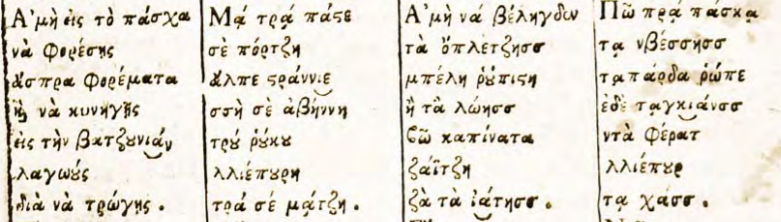 Ἀμὴ εἰς τὸ πάσχα
νὰ φορέσῃς
ἄσπρα φορέματα
ἢ νὰ κυνηγῇς
εἰς τὴν βατζȣνιάν
λαγωȣ́ς
διὰ νὰ τρώγῃς .
Μά τρά πάϛε
σὲ πόρτζη
ἄλπε ϛράννιε
σσὴ σὲ ἀβήννη
τρȣ́ ῥȣ́κȣ
λλιέπȣρη
τρά σὲ μάτζη .
Ἀμὴ νά βέληγδεν
τὰ ὅπλετζησσ
μπέλη ῥȣ́πιϛη
ἢ τὰ λώησσ
ϛῶ καπίνατα
ζάϊτζη
ζὰ τὰ ἰάτησσ .
Πῶ πρά πάσκα
τα νβέσσησσ
ταπάρδα ῥώπε
ἐδὲ ταγκιάνσσ
ντὰ φέρατ
λλιέπȣρ
τα χάσσ .